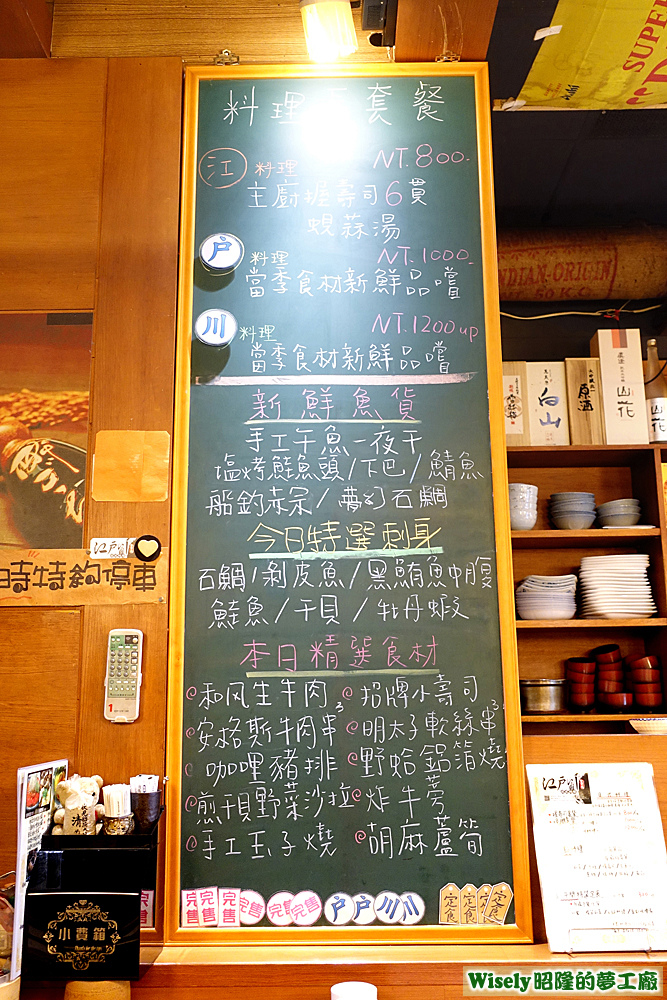 料理 套餐
江 料理 NT.800.
主廚握壽司6貫
蜆蒜湯
戶 料理 NT.1000.
當季食材新鮮品嚐
川 料理 NT.1200up
當季食材新鮮品嚐
新鮮魚貨
手工午魚一夜干
塩烤鮭魚頭/下巴/鯖魚
船釣赤呆/夢幻石鯛
今日特選刺身
石鯛/剝皮魚/黑鮪魚中腹
鮭魚/干貝/牡丹蝦
本日精選食材
@和风生牛肉 @招牌小壽司
@安格斯牛肉串 @明太子軟絲串
@咖哩豬排 @野蛤鋁箔燒
@煎干貝野菜沙拉 @炸牛蒡
@手工玉子燒 @胡麻蘆筍
完售 完售 完售 完售 完售 完售 戶 戶 川 川 定食 定食 定食
SUPER
INDIAN-ORIGIN
50 KG
白山
原酒
山花
山花
江戶
時特約停車
小費箱
江戶
Wisely昭隆的夢工廠